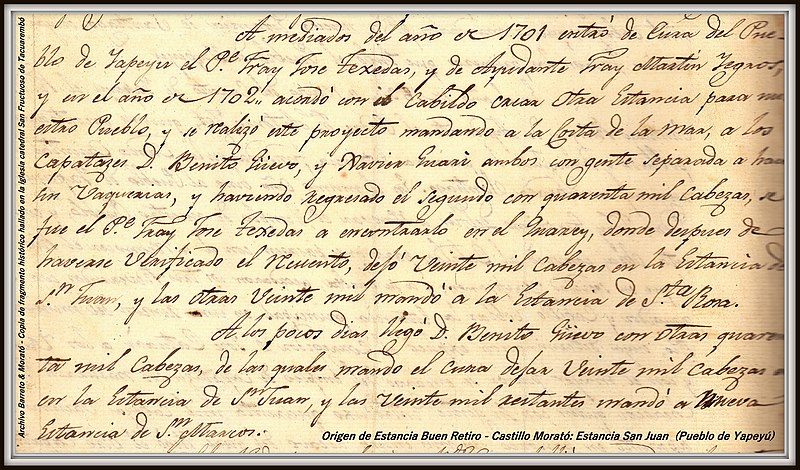 A mediados del año de 1701 entró de Cura del Pue-
blo de Yapeyu el P.e Fray Jose Texedas, y de Ayudante Fray Martin Yegros,
y en el año de 1702,, acordó con el Cabildo sacar otra Estancia para nu
estro Pueblo, y se realizó este proyecto mandando a la Costa de la mar, a los
Capatazes D. Benito Güevo, y Xavier Guarí ambos con gente separada a ha
sin Vaquerias, y haviendo regresado el segundo con quarenta mil Cabezas, se
fue el P.e Fray Jose Texedas a encontrarlo en el Guarey, donde despues de
haverse verificado el recuento, dejó Veinte mil Cabezas en la Estancia de
S.n Juan, y las otras Veinte mil mandó a la Estancia de S.ta Rosa.
A los pocos dias llegó D. Benito Güevo con otras quaren
ta mil Cabezas, de las quales mando el cura dejar Veinte mil Cabezas
en la Estancia de S.n Juan, y las Veinte mil restantes mandó a Nueva
Estancia de S.n Marcos.
Origen de Estancia Buen Retiro - Castillo Morató: Estancia San Juan (Pueblo de Yapeyú)
Archivo Barreto & Morató - Copia de fragmento histórico hallado en la iglesia catedral San Fructuoso de Tacuarembó